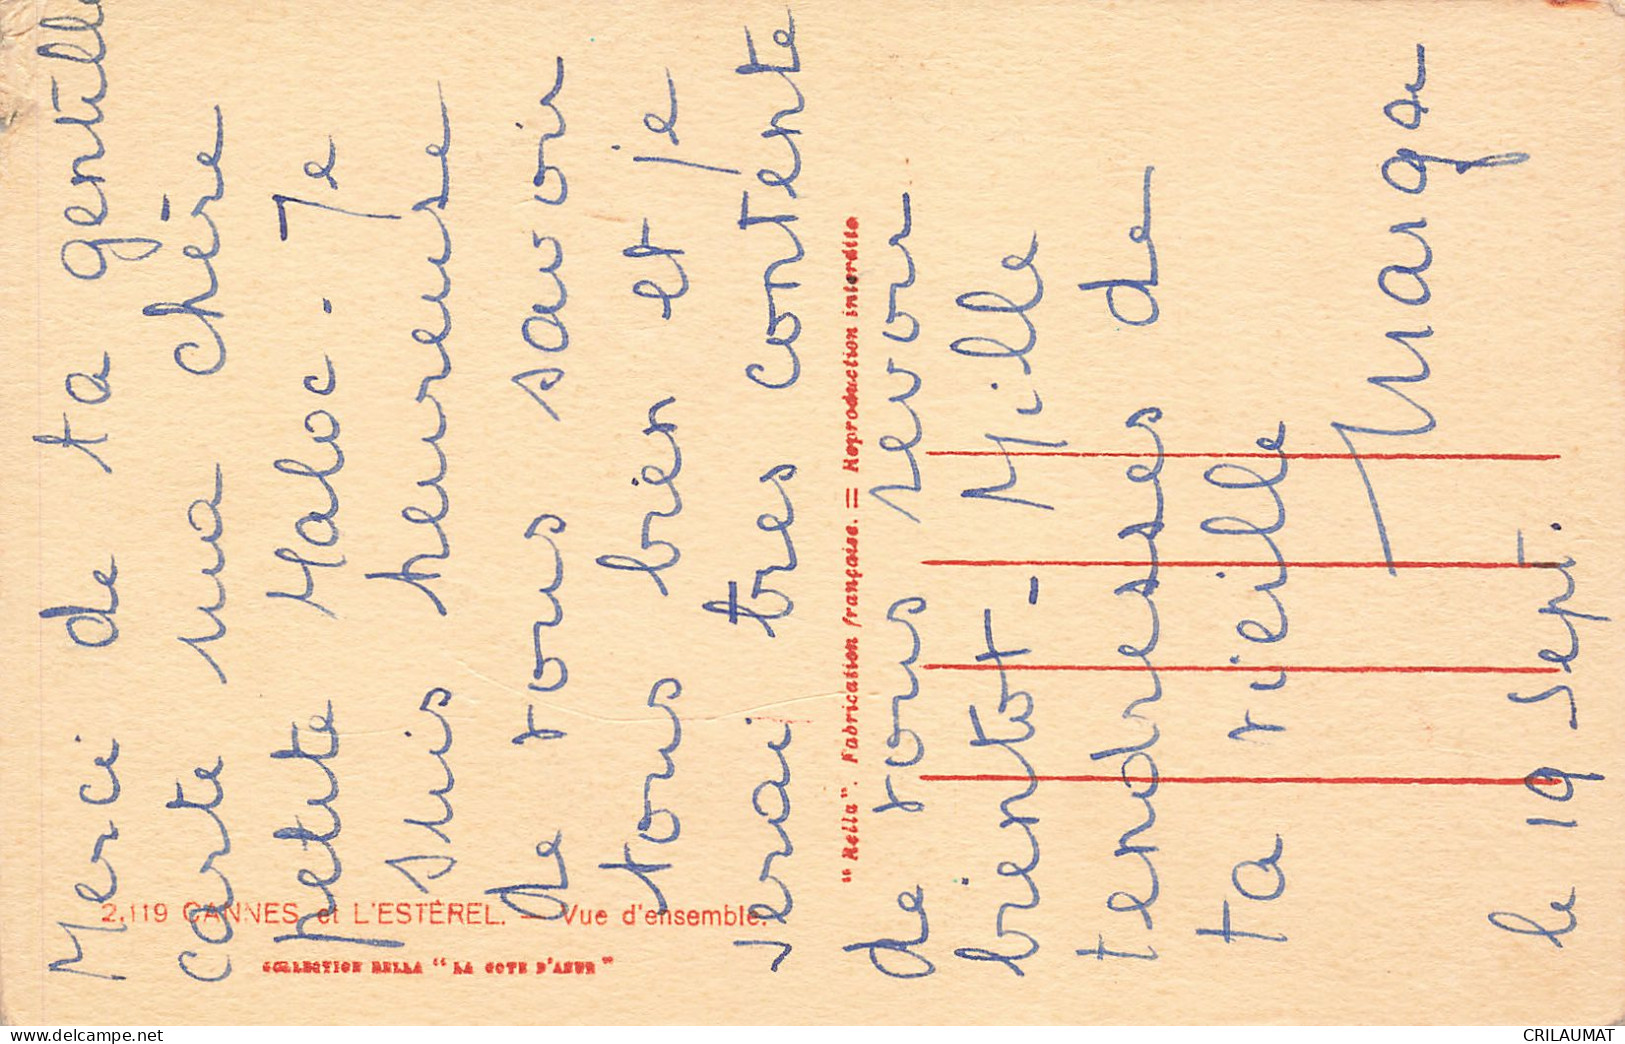 Merci de ta gentille
carte ma chère
petite Maloc. Je
suis heureuse
de vous savoir
tous bien et je
serai très contente
de vous revoir
bientot - Mille
tendresses de
ta vieille
Marga
le 19 Sept.
2.119 CANNES et L'ESTÉREL. — Vue d'ensemble.
COLLECTION RELLA "LA COTE D'AZUR"
"Rella". Fabrication française. = Reproduction interdite
www.delcampe.net
CRILAUMAT